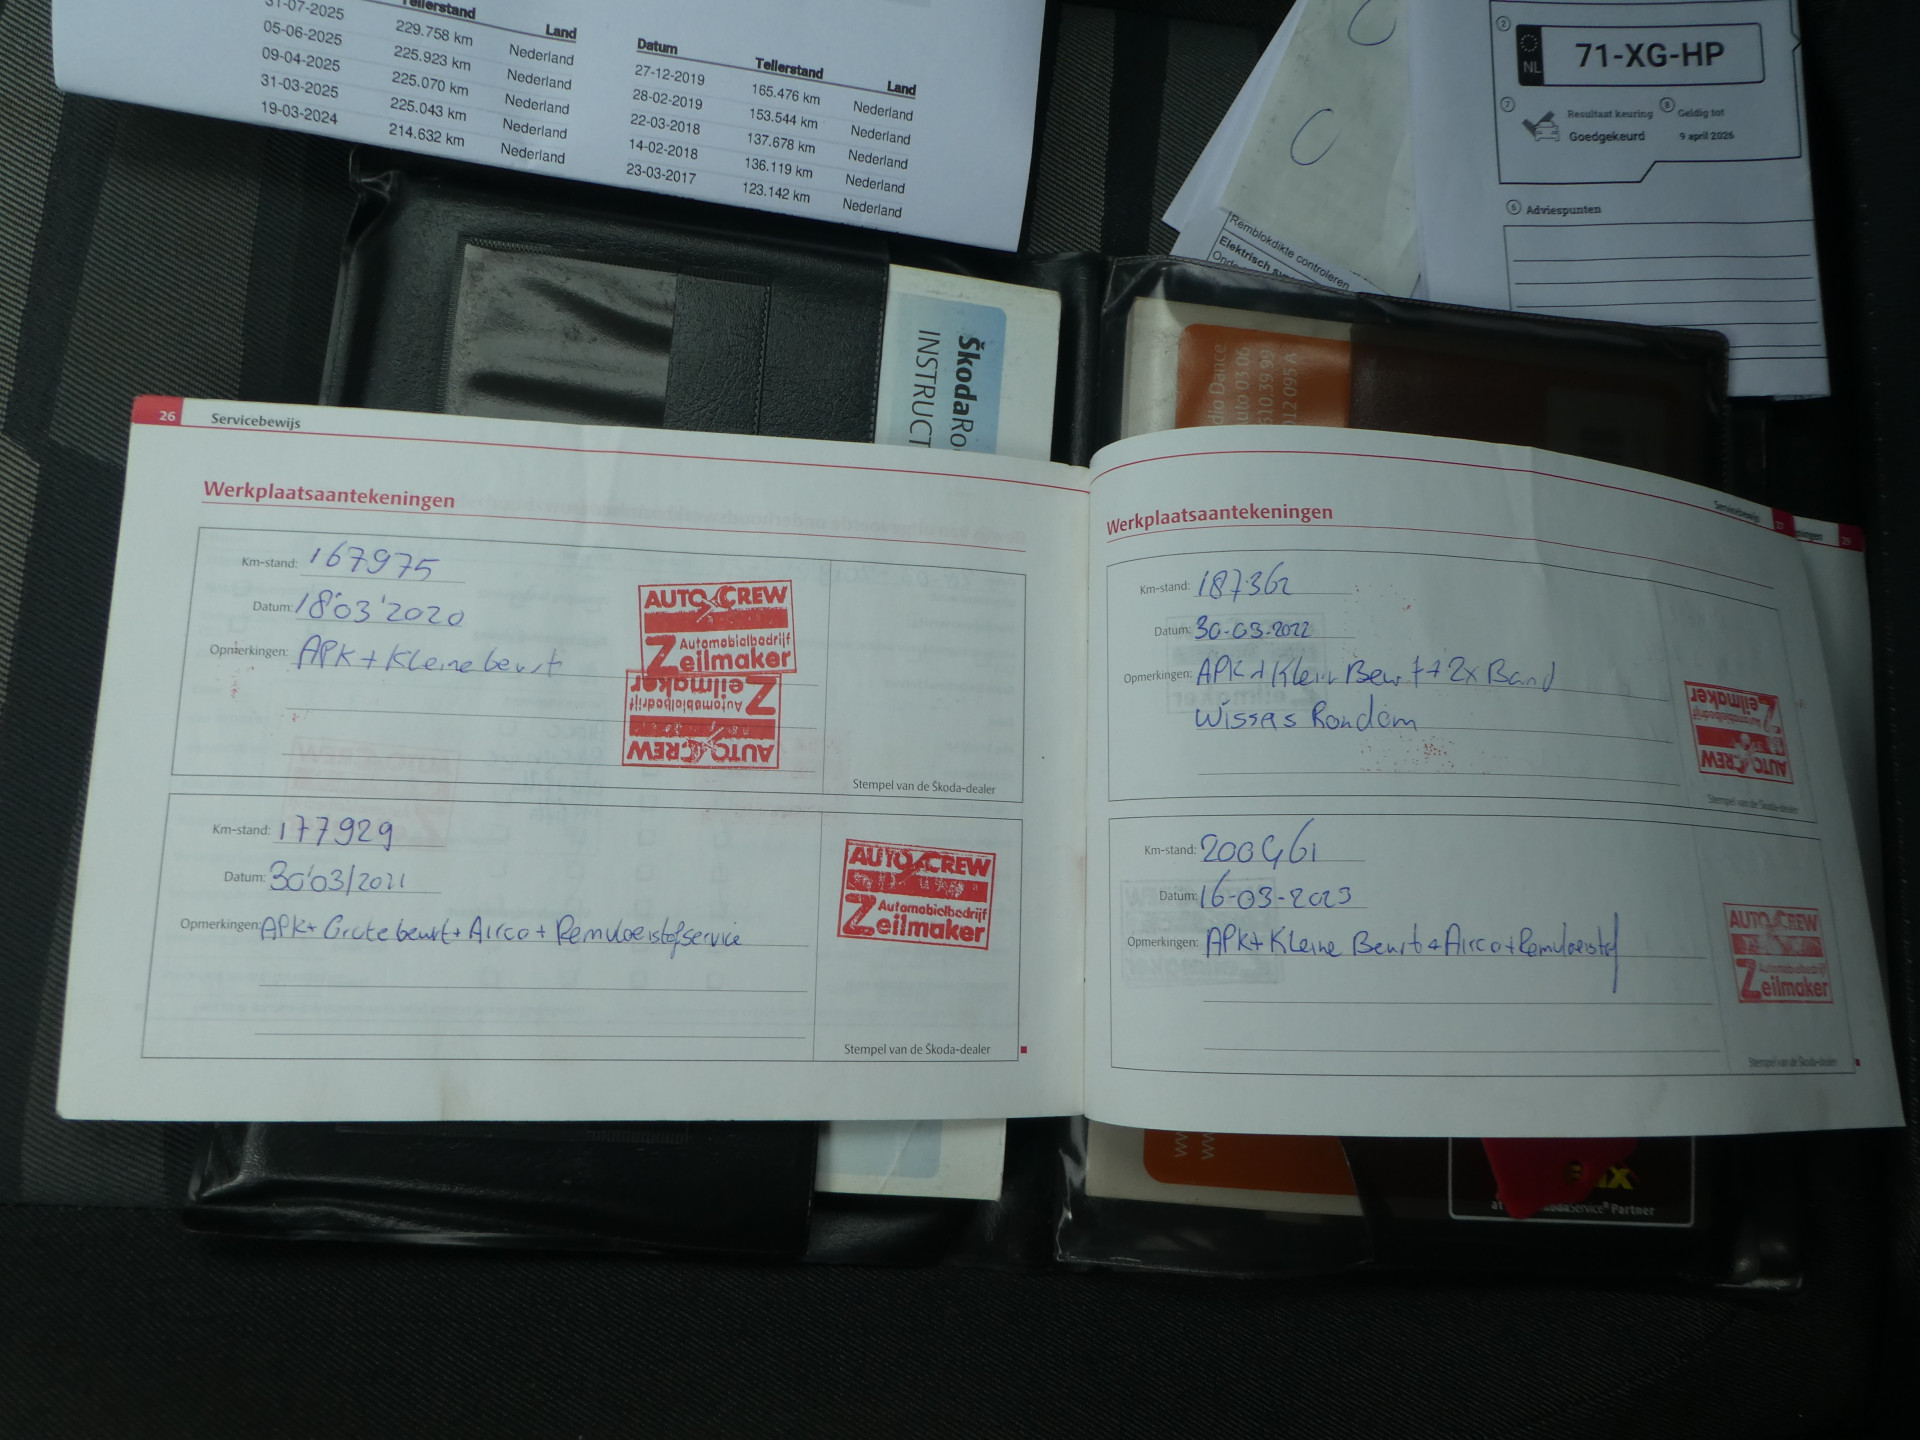 31-07-2025 229.758 km Nederland
05-06-2025 225.923 km Nederland
09-04-2025 225.070 km Nederland
31-03-2025 225.043 km Nederland
19-03-2024 214.632 km Nederland
Tellerstand Land
Datum Tellerstand Land
27-12-2019 165.476 km Nederland
28-02-2019 153.544 km Nederland
22-03-2018 137.678 km Nederland
14-02-2018 136.119 km Nederland
23-03-2017 123.142 km Nederland
C
C
Remblokdikte controleren
Elektrisch
2
NL
71-XG-HP
7 Resultaat keuring
Goedgekeurd
8 Geldig tot
9 april 2026
6 Adviespunten
ŠkodaRo
INSTRUCT
dio Dance
uto 03.06
510.39.99
012 095 A
26 Servicebewijs
Werkplaatsaantekeningen
Km-stand: 167975
Datum: 18'03'2020
Opmerkingen: APK + Kleine beurt
AUTO CREW
Automobielbedrijf
Zeilmaker
AUTO CREW
Automobielbedrijf
Zeilmaker
Stempel van de Škoda-dealer
Km-stand: 177929
Datum: 30'03/2021
Opmerkingen: APK+ Grote beurt + Airco + Remvloeistofservice
AUTO CREW
Automobielbedrijf
Zeilmaker
Stempel van de Škoda-dealer
Servicebewijs 27
29
Werkplaatsaantekeningen
Km-stand: 187362
Datum: 30-03-2022
Opmerkingen: APK + Klein Beurt + 2x Band
Wissers Rondom
AUTO CREW
Automobielbedrijf
Zeilmaker
Stempel van de Škoda-dealer
Km-stand: 200461
Datum: 16-03-2023
Opmerkingen: APK+ Kleine Beurt + Airco + Remvloeistof
AUTO CREW
Automobielbedrijf
Zeilmaker
Stempel van de Škoda-dealer
Service® Partner